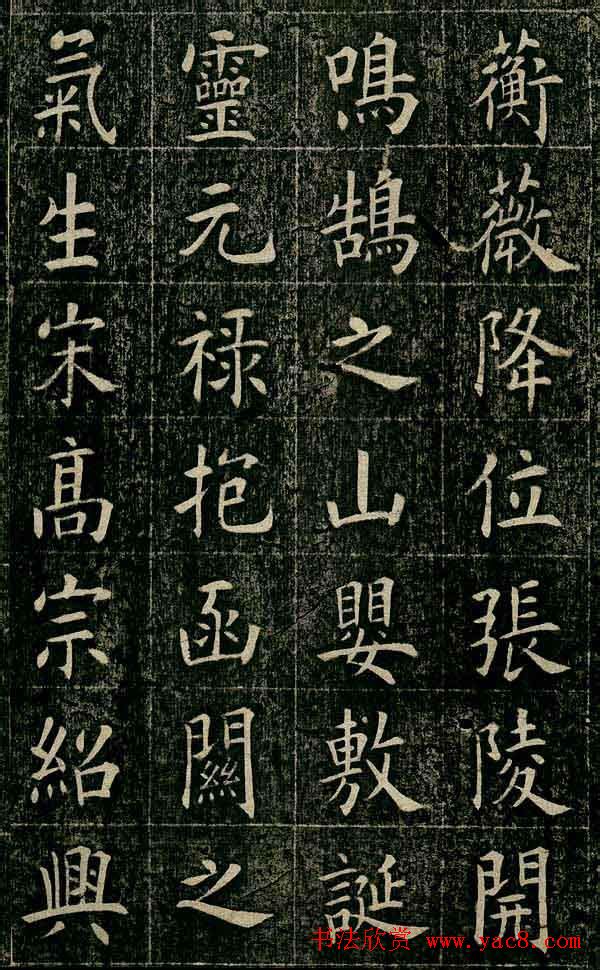 蘅薇降位張陵開
鳴鵠之山嬰敷誕
靈元禄抱函關之
氣生宋髙宗紹興
书法欣赏 www.yac8.com